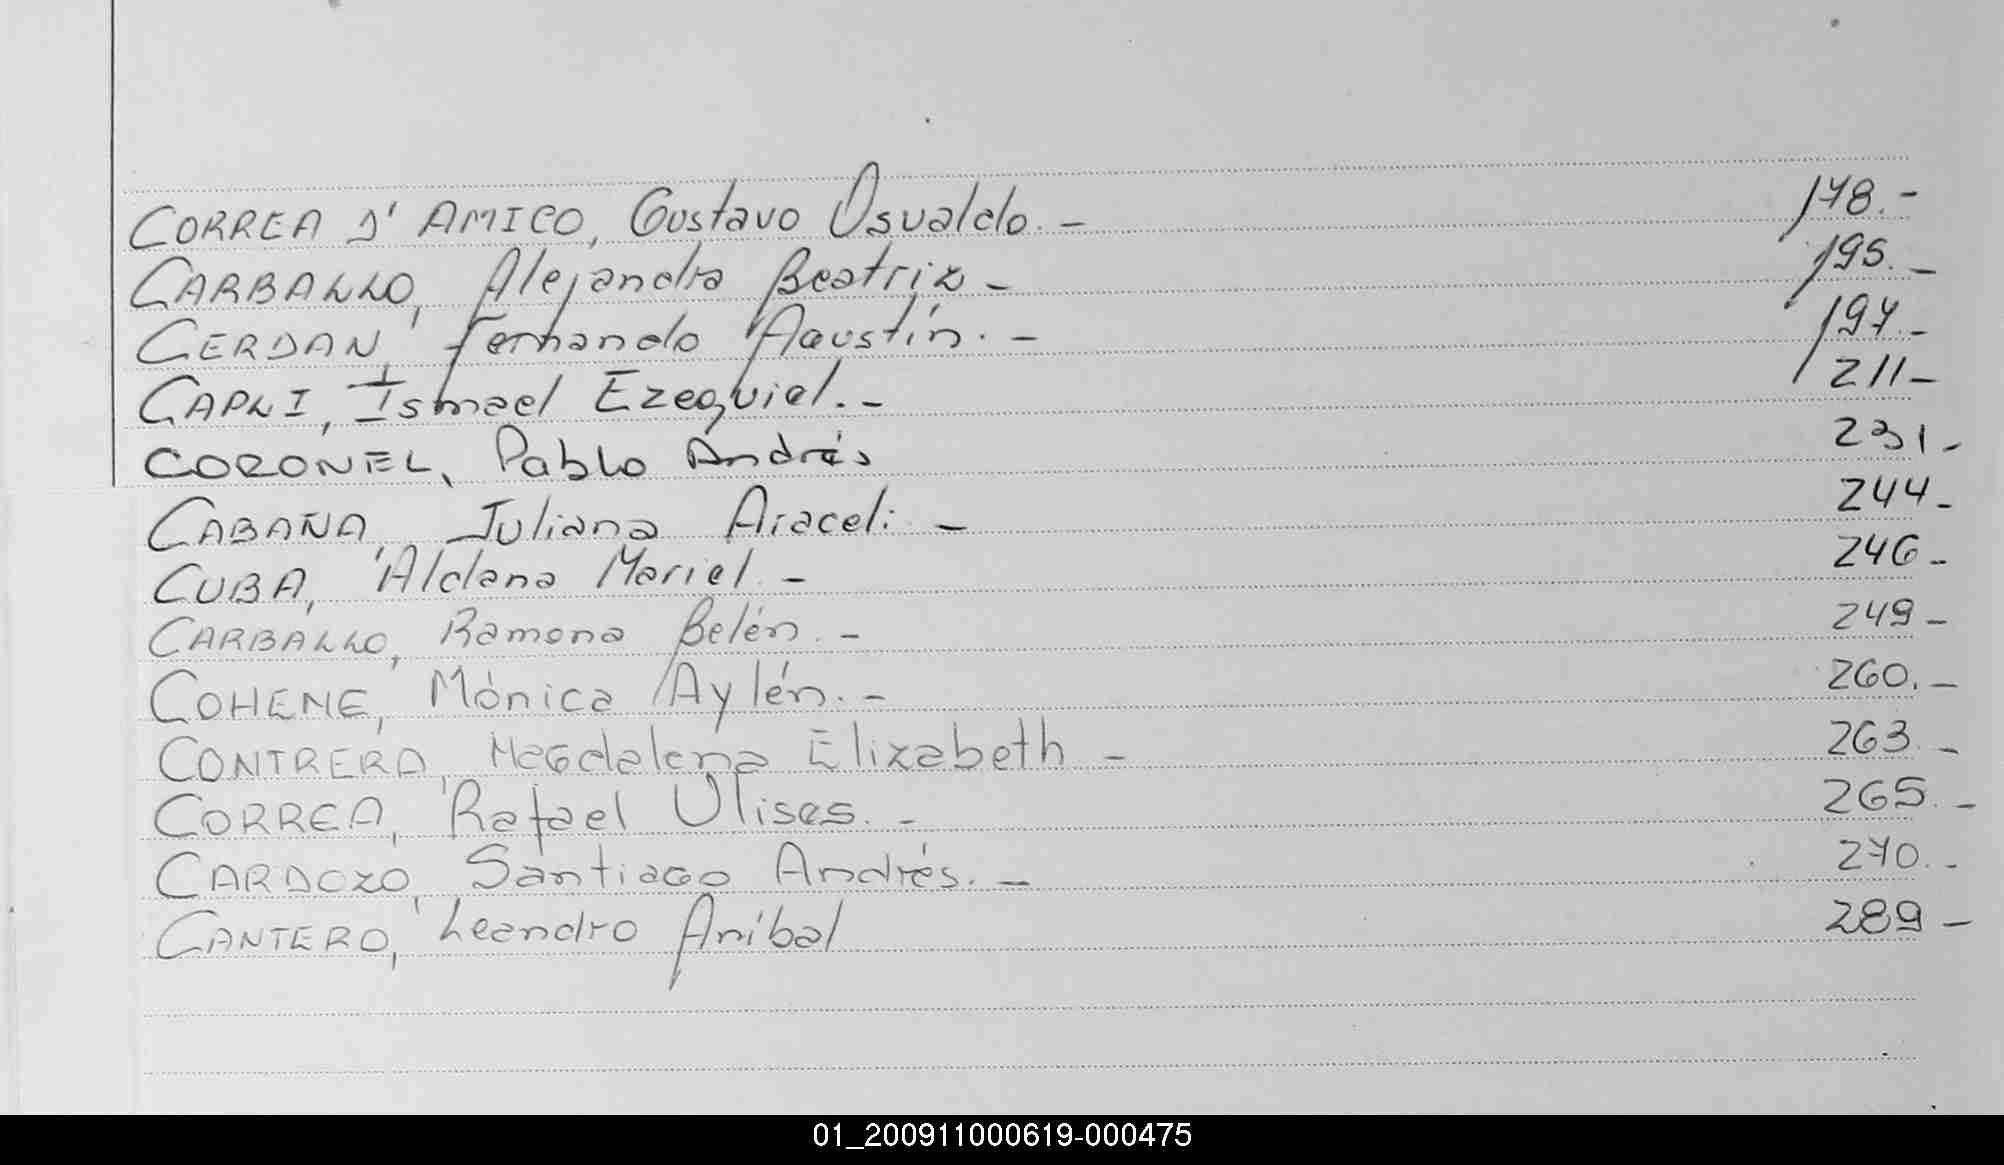 CORREA D' AMICO, Gustavo Osvaldo. - 178.-
CARBALLO, Alejandra Beatriz - 195. -
CERDAN, Fernando Agustín. - 197.-
CAPLI, Ismael Ezequiel. - 211-
CORONEL, Pablo Andrés 231-
CABAÑA, Juliana Araceli - 244-
CUBA, Aldana Mariel. - 246-
CARBALLO, Ramona Belén. - 249-
COHENE, Mónica Aylén. - 260. -
CONTRERA, Magdalena Elizabeth - 263. -
CORREA, Rafael Ulises. - 265. -
CARDOZO, Santiago Andrés. - 270. -
CANTERO, Leandro Aníbal 289 -
01_200911000619-000475